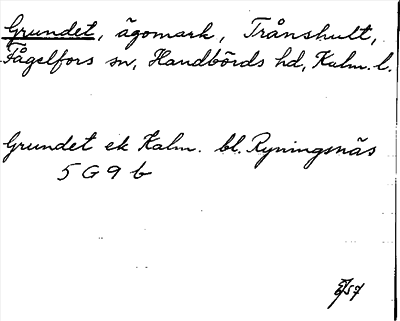 Grundet, ägomark, Trånshult,
Fågelfors sn, Handbörds hd, Kalm. l.
Grundet ek Kalm. bl. Ryningsnäs
5 G 9 b